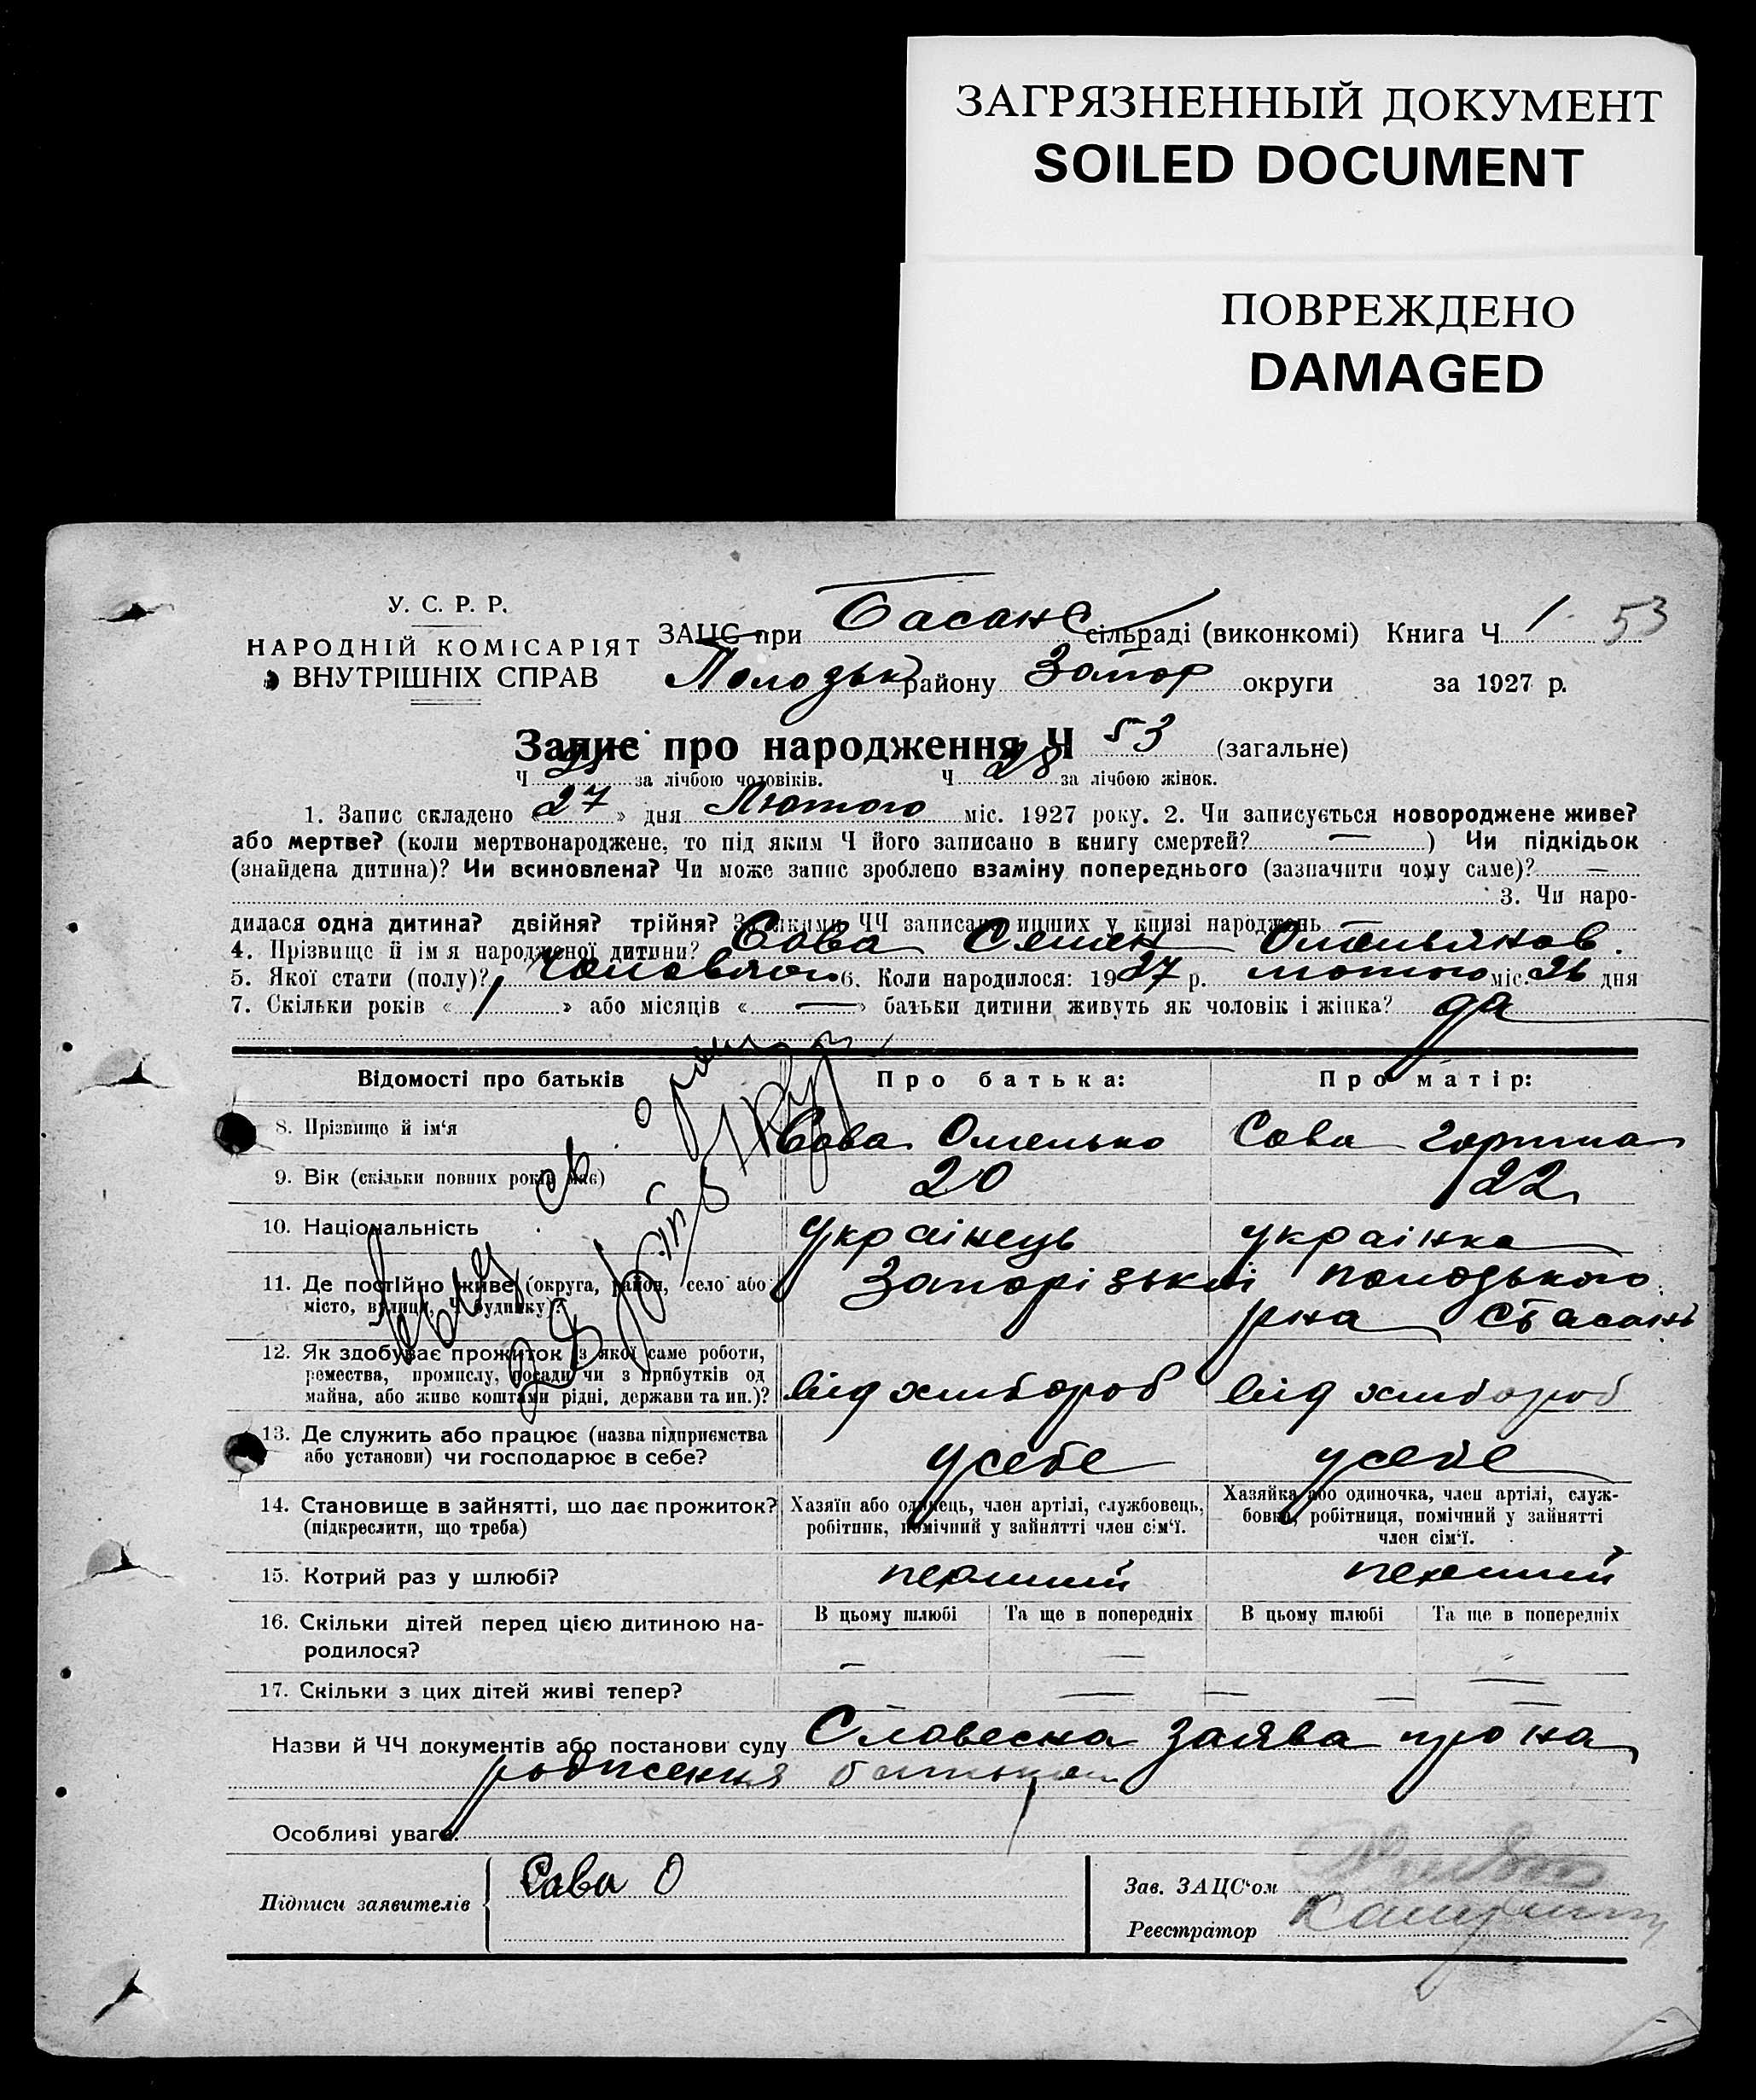 ЗАГРЯЗНЕННЫЙ ДОКУМЕНТ
SOILED DOCUMENT
ПОВРЕЖДЕНО
DAMAGED
У. С. Р. Р.
НАРОДНІЙ КОМІСАРІЯТ
ВНУТРІШНІХ СПРАВ
ЗАЦС при Басанс сільраді (виконкомі) Книга Ч 1 53
Пологзьк району Запор округи за 1927 р.
Запис про народження Ч 53 (загальне)
Ч за лічбою чоловіків. Ч 28 за лічбою жінок.
1. Запис складено « 27 » дня Лютого міс. 1927 року. 2. Чи записується новороджене живе?
або мертве? (коли мертвонароджене, то під яким Ч його записано в книгу смертей? — ) Чи підкідьок
(знайдена дитина)? Чи всиновлена? Чи може запис зроблено взаміну попереднього (зазначити чому саме)? —
3. Чи наро-
дилася одна дитина? двійня? трійня? За якими ЧЧ записано инших у книзі народжень
4. Прізвище й ім'я народженої дитини? Сова Семен Омельянов.
5. Якої стати (полу)? чоловічого 6. Коли народилося: 1927 р. лютого міс. 26 дня
7. Скільки років « 1 » або місяців « — » батьки дитини живуть як чоловік і жінка? да
Відомості про батьків Про батька: Про матір:
8. Прізвище й ім'я Сова Омелько Сова
9. Вік (скільки повних років має) 20 22
10. Національність українець українка
11. Де постійно живе (округа, район, село або Запорізький пологзького
місто, вулиця, Ч будинку)? рна с Басань
12. Як здобуває прожиток (з якої саме роботи,
ремества, промислу, посади чи з прибутків од
майна, або живе коштами рідні, держави та ин.)? від хлібороб від хлібороб
13. Де служить або працює (назва підприємства
або установи) чи господарює в себе? усебе усебе
14. Становище в зайнятті, що дає прожиток?
(підкреслити, що треба)
Хазяїн або одинець, член артілі, службовець,
робітник, помічний у зайнятті член сім'ї.
Хазяйка або одиночка, член артілі, служ-
бовка, робітниця, помічний у зайнятті
член сім'ї.
15. Котрий раз у шлюбі? перший перший
16. Скільки дітей перед цією дитиною на-
родилося?
В цьому шлюбі Та ще в попередніх В цьому шлюбі Та ще в попередніх
— — —
17. Скільки з цих дітей живі тепер? — — — —
Назви й ЧЧ документів або постанови суду Словесна заява про на
родження батьком
Особливі уваги
Підписи заявителів Сава О
Зав. ЗАЦС'ом
Реєстратор